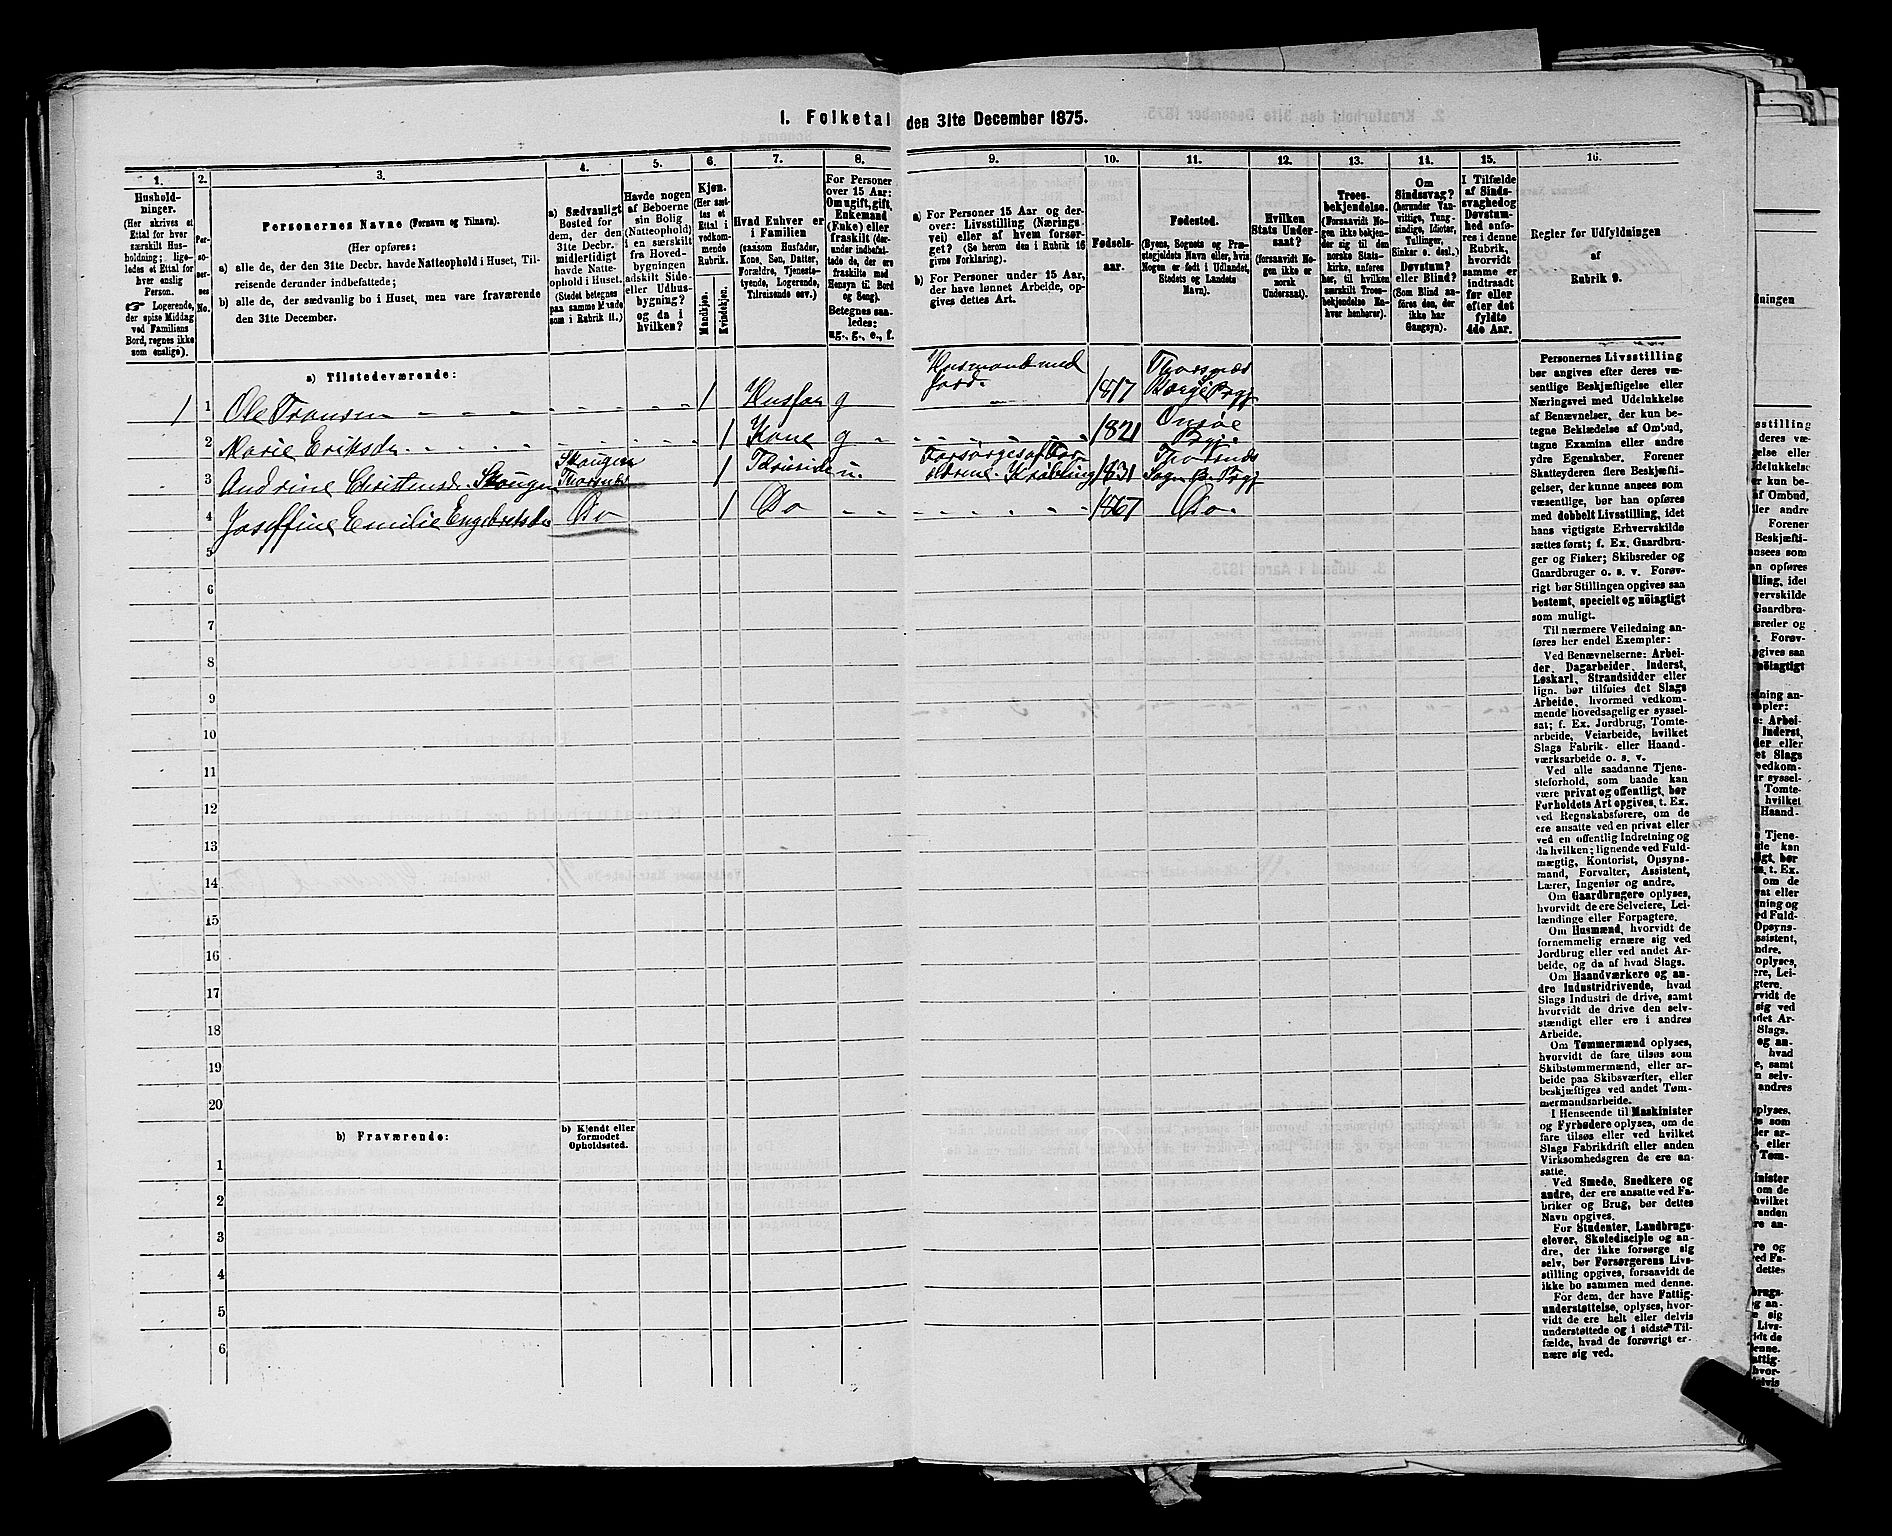 1. Folketal den 31te December 1875.
1.
2.
3.
4.
5.
6.
7.
8.
9.
10.
11.
12.
13.
14.
15.
16.
Hushold-
ninger.
(Her skrives et
Ettal for hver
særskilt Hus-
holdning; lige-
ledes et Ettal for
hver enslig
Person.
☞ Logerende,
der spise Middag
ved Familiens
Bord, regnes ikke
som enslige).
Per-
so-
ner-
nes
No.
Personernes Navne (Fornavn og Tilnavn).
(Her opføres:
a) alle de, der den 31te Decbr. havde Natteophold i Huset, Til-
reisende derunder indbefattede;
b) alle de, der sædvanlig bo i Huset, men vare fraværende
den 31te December.
a) Sædvanligt
Bosted for
dem, der den
31te Decbr.
midlertidigt
havde Natte-
ophold i Huset.
(Stedet betegnes
paa samme Maade
som i Rubrik 11.)
Havde nogen
af Beboerne
sin Bolig
(Natteophold)
i en særskilt
fra Hoved-
bygningen
adskilt Side-
eller Udhus-
bygning?
og da i
hvilken?
Kjøn.
(Her sæt-
tes et
Ettal i
vedkom-
mende
Rubrik.
Mandkjøn.
Kvindekjøn.
Hvad Enhver er
i Familien
(saasom Husfader,
Kone, Søn, Datter,
Forældre, Tjeneste-
tyende, Logerende,
Tilreisende osv.)
For Personer
over 15 Aar:
Om ugift, gift,
Enkemand
(Enke) eller
fraskilt (der-
under indbefat-
tede de, der ere
fraskilte med
Hensyn til Bord
og Seng).
Betegnes saa-
ledes:
ug., g., e., f.
a) For Personer 15 Aar og der-
over: Livsstilling (Nærings-
vei) eller af hvem forsør-
get? (Se herom den i Rubrik 16
givne Forklaring).
b) For Personer under 15 Aar,
der have lønnet Arbeide, op-
gives dettes Art.
Fødsels-
aar.
Fødested.
(Byens, Sognets og Præ-
stegjeldets Navn eller, hvis
Nogen er født i Udlandet,
Stedets og Landets
Navn).
Hvilken
Stats Under-
saat?
(forsaavidt No-
gen ikke er
norsk
Undersaat).
Troes-
bekjendelse.
(Forsaavidt No-
gen ikke bekjen-
der sig til den
norske Stats-
kirke, anføres
her, til hvilken
særskilt Troes-
bekjendelse En-
hver henhører).
Om
Sindssvag?
(herunder Van-
vittige, Tung-
sindige, Idioter,
Tullinger,
Sinker o. desl.).
Døvstum?
eller Blind?
(Som Blind an-
føres den, der
ikke har
Gangsyn).
I Tilfælde
af Sinds-
svaghed og
Døvstum-
hed anføres
i denne
Rubrik,
hvorvidt
samme er
indtraadt
før eller
efter det
fyldte
4de Aar.
Regler for Udfyldningen
af
Rubrik 9.
a) Tilstedeværende:
1 1 Ole Fransen 1 Husfar g Husmand med Jord. 1817 Thorsnæs Borge Prgj
2 Marie Eriksdr. 1 Kone g 1821 Onsøe Prgj.
3 Andrine Christensdr. Skougen Skougen Thorsnæs 1 Tilreisende u. Forsørges af For- 1831 Thorsnæs Sogn Prgj
4 Josefine Emilie Engebretsdr Do 1 Do 1867 Do.
5
6
7
8
9
10
11
12
13
14
15
16
17
18
19
20
b) Fraværende:
b) Kjendt eller
formodet
Opholdssted.
1
2
3
4
5
6
Personernes Livsstilling
bør angives efter deres væ-
sentlige Beskjæftigelse eller
Næringsvei med Udelukkelse
af Benævnelser, der kun be-
tegne Beklædelse af Ombud,
tagne Examina eller andre
ydre Egenskaber. Forener
Skatteyderen flere Beskjæfti-
gelser, der kunne ansees som
væsentlige, bør han opføres
med dobbelt Livsstilling, idet
hans vigtigste Erhvervskilde
sættes først; f. Ex. Gaardbru-
ger og Fisker; Skibsreder og
Gaardbruger o. s. v. Forøv-
rigt bør Stillingen opgives saa
bestemt, specielt og nöiagtigt
som muligt.
Til nærmere Veiledning an-
føres her endel Exempler:
Ved Benævnelserne: Arbei-
der, Dagarbeider, Inderst,
Løskarl, Strandsidder eller
lign. bør tilføies det Slags
Arbeide, hvormed vedkom-
mende hovedsagelig er syssel-
sat; f. Ex. Jordbrug, Tomte-
arbeide, Veiarbeide, hvilket
Slags Fabrik- eller Haand-
værksarbeide o. s. v.
Ved alle saadanne Tjene-
steforhold, som baade kan
være privat og offentligt, bør
Forholdets Art opgives, t. Ex.
ved Regnskabsførere, om de
ere ansatte ved en privat eller
ved en offentlig Indretning og
da hvilken; lignende ved Fuld-
mægtig, Kontorist, Opsyns-
mand, Forvalter, Assistent,
Lærer, Ingeniør og andre.
Om Gaardbrugere oplyses,
hvorvidt de ere Selveiere, Lei-
lændinge eller Forpagtere.
Om Husmænd, hvorvidt de
fornemmelig ernære sig ved
Jordbrug eller ved andet Ar-
beide, og da af hvad Slags.
Om Haandværkere og an-
dre Industridrivende, hvad
Slags Industri de drive, samt
hvorvidt de drive den selv-
stændigt eller ere i andres
Arbeide.
Om Tømmermænd oplyses,
hvorvidt de fare tilsøs som
Skibstømmermænd, eller ar-
beide paa Skibsværfter, eller
beskjæftiges ved andet Tøm-
mermandsarbeide.
I Henseende til Maskinister
og Fyrbødere oplyses, om de
fare tilsøs eller ved hvilket
Slags Fabrikdrift eller anden
Virksomhedsgren de ere an-
satte.
Ved Smede, Snedkere og
andre, der ere ansatte ved Fa-
briker og Brug, bør dettes
Navn opgives.
For Studenter, Landbrugs-
elever, Skoledisciple og an-
dre, der ikke forsørge sig
selv, bør Forsørgerens Livs-
stilling opgives, forsaavidt de
ikke bo sammen med denne.
For dem, der have Fattig-
understøttelse, oplyses, hvor-
vidt de ere helt eller delvis
understøttede og i sidste Til-
fælde, hvad de forøvrigt er-
nære sig ved.